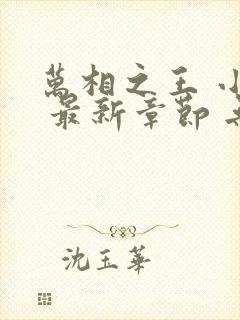 萬相之王
最新章節
沈玉華